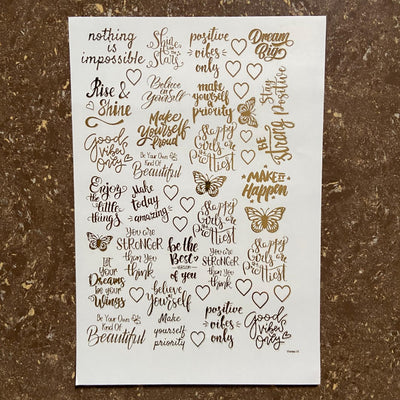 nothing
is
impossible
Shine
like the
Stars
positive
vibes
only
Dream
Big
Rise &
Shine
Believe
in
Yourself
make
yourself
priority
Stay
Strong
BE
Positive
Good
vibes
only
Make
Yourself
Proud
Happy
Girls are
the
Prettiest
Be Your Own
Kind Of
Beautiful
MAKE IT
Happen
Enjoy
the little
things
Make
today
amazing
Happy
Girls are
the
Prettiest
you are
STRONGER
than you
think
be the
Best
VERSION
of you
you are
STRONGER
than you
think
Happy
Girls are
the
Prettiest
LET
your
Dreams
be your
Wings
believe
in
Yourself
Be Your Own
Kind Of
Beautiful
Make
yourself
priority
positive
vibes
only
Good
vibes
only